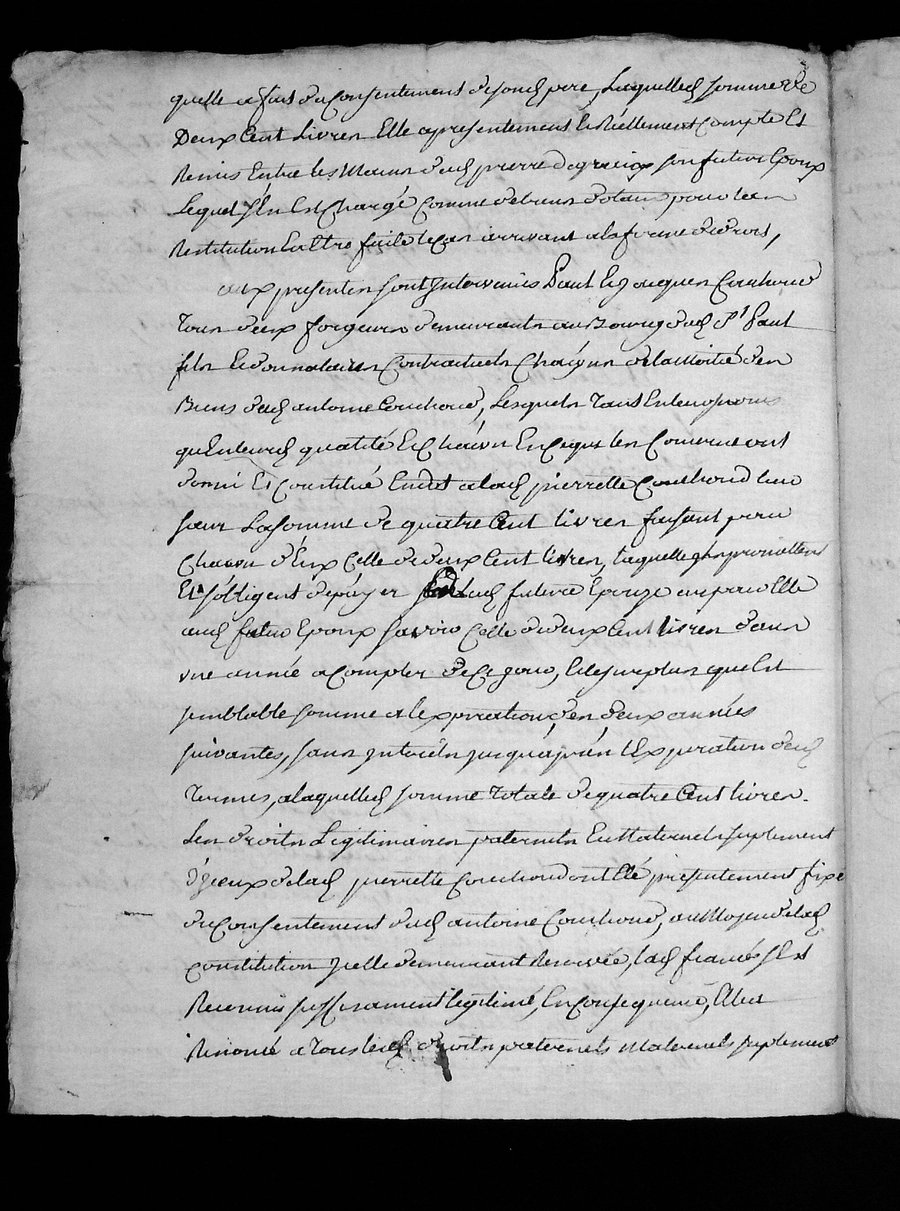 quelle a fait du Consentement de son d. pere, Laquelled. somme de
Deux Cent Livres Elle a presentement Et Réellement Comptée Et
Remis Entre les Mains dud. pierre son futur Epoux
Lequel s'En Est Chargé Comme de biens dotaux pour leur
Restitution Estre faite le Cas arrivant a la forme du droit,
aux presentes sont Intervenus Paul Et Jacques Couchoud
Tous deux forgeurs demeurants au Bourg dud. St Paul
fils Et donnataires Contractuels Chacun de la Moitié des
Biens dud. antoine Couchoud, Lesquels Tant En leurs
qu'En leurd. qualité Et Chacun En Ce qui les Concerne ont
donné Et Constitué En dot a lad. pierrette Couchoud leur
sœur La somme de quatre Cent livres faisant pour
Chacun d'Eux Celle de deux Cent livres, laquelle ils promettent
Et s'obligent de payer a lad. future Epouze ou pour Elle
aud. futur Epoux savoir Celle de deux Cent livres dans
une année a Compter de Ce jour, Et le surplus qui Est
semblable somme a l'Expiration des deux années
suivantes, sans Interets jusqu'après l'Expiration desd.
Termes, a laquelled. somme Totale de quatre Cent livres.
Les droits Legitimaires paternels Et Maternels suplement
d'yceux de lad. pierrette Couchoud ont Eté presentement fixé
du Consentement dud. antoine Couchoud, au Moyen de lad.
Constitution qu'elle demeurant Reservée, lad. fiancée s'Est
Reconnue suffisament légitimé, En Consequence, Elle a
Renoncé a Tous lesd. droits paternels Maternels suplement